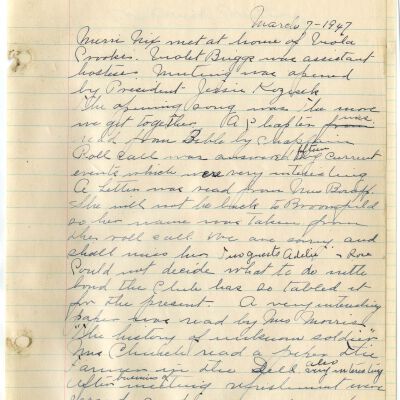 March 7-1947
Mum Nix met at home of Viola
Crooks. Violet Bugge was assistant
hostess. Meeting was opened
by President Jessie
The opening song was The more
we get together. A Chapter was
read from Bible by Chaplain
Roll call was answered by fifteen current
events which were very interesting
A letter was read from Mrs
She will not be back to Broomfield
so her name was taken from
the roll call. We are sorry and
shall miss her. two guests Adelie &
Could not decide what to do with
bond the Club has so tabled it
for the present. A very interesting
paper was read by Mrs Morris
"The history of unknown soldier"
Mrs Church read a paper The
Farmer in the Dell also very interesting
After business meeting refreshment were